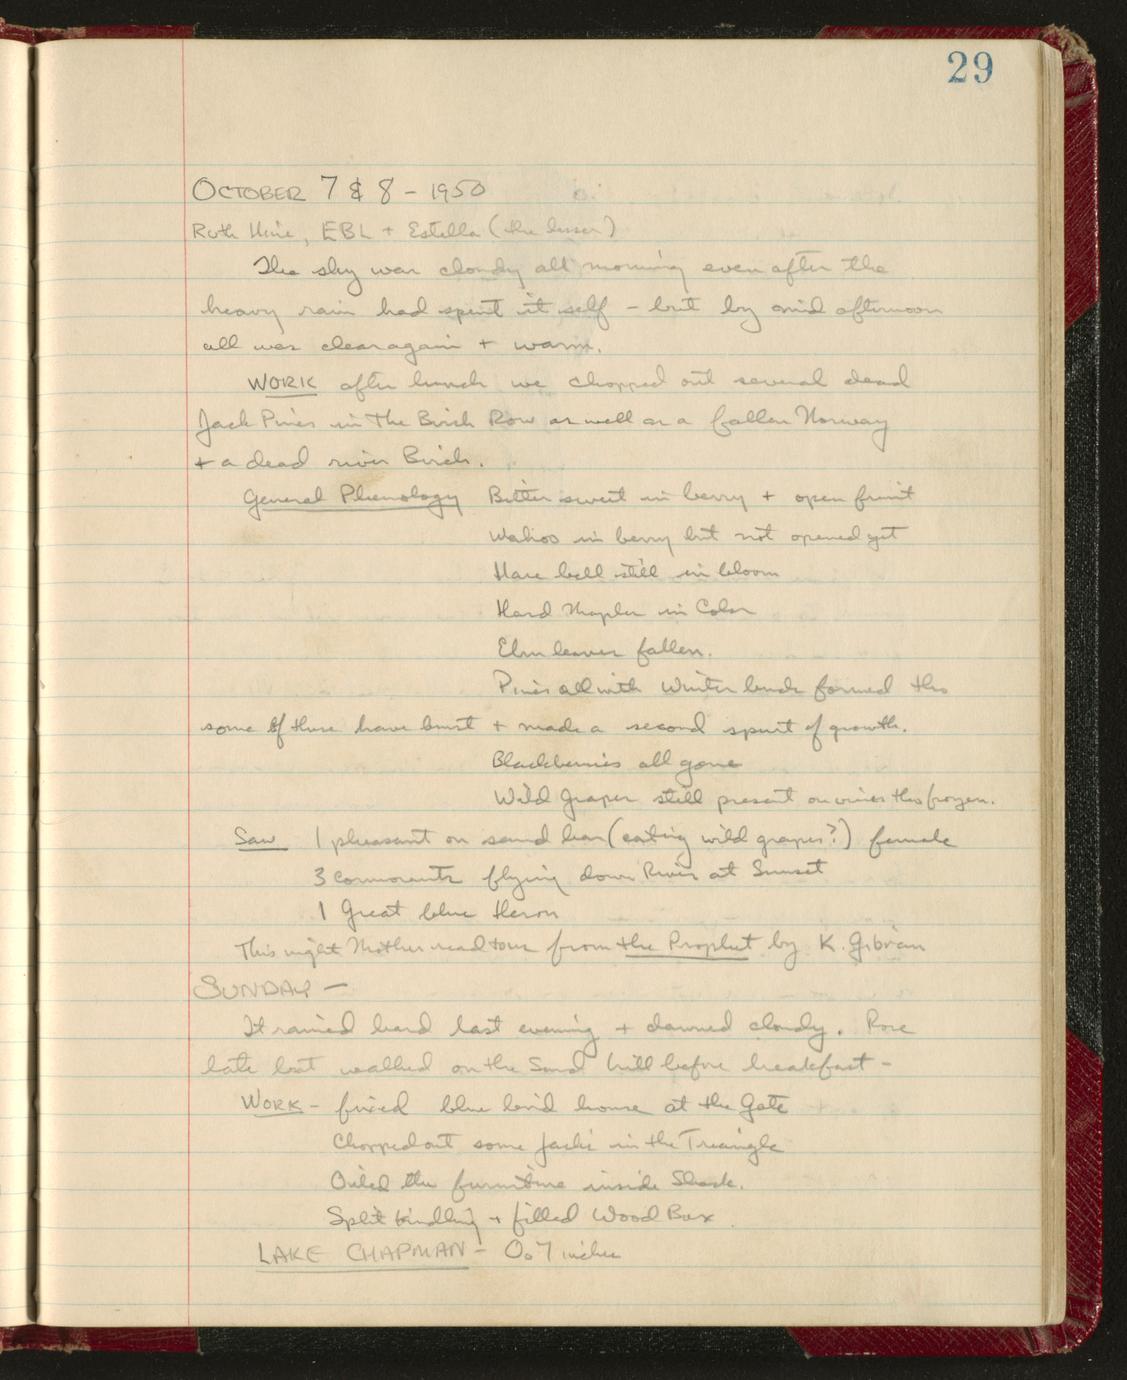 29
OCTOBER 7 & 8 - 1950
Ruth Hine, EBL + Estella (the lesser)
The sky was cloudy all morning even after the
heavy rain had spent it self - but by mid afternoon
all was clear again + warm.
WORK after lunch we chopped out several dead
Jack Pines in the Birch Row as well as a fallen Norway
+ a dead river Birch.
General Phenology Bitter sweet in berry + open fruit
Wahoo in berry but not opened yet
Hare bell still in bloom
Hard Maples in Color
Elm leaves fallen.
Pines all with Winter buds formed tho
some of these have burst + made a second spurt of growth.
Blackberries all gone
Wild Grapes still present on vines tho frozen.
Saw 1 pheasant on sand bar (eating wild grapes?) female
3 cormorants flying down River at Sunset
1 Great blue Heron
This night Mother read to us from the Prophet by K. Gibran
SUNDAY -
It rained hard last evening + dawned cloudy. Rose
late but walked on the Sand hill before breakfast -
WORK - fixed blue bird house at the Gate
Chopped out some Jacks in the Triangle
Oiled the furniture inside Shack.
Split kindling + filled Wood Box.
LAKE CHAPMAN - 0.7 inches